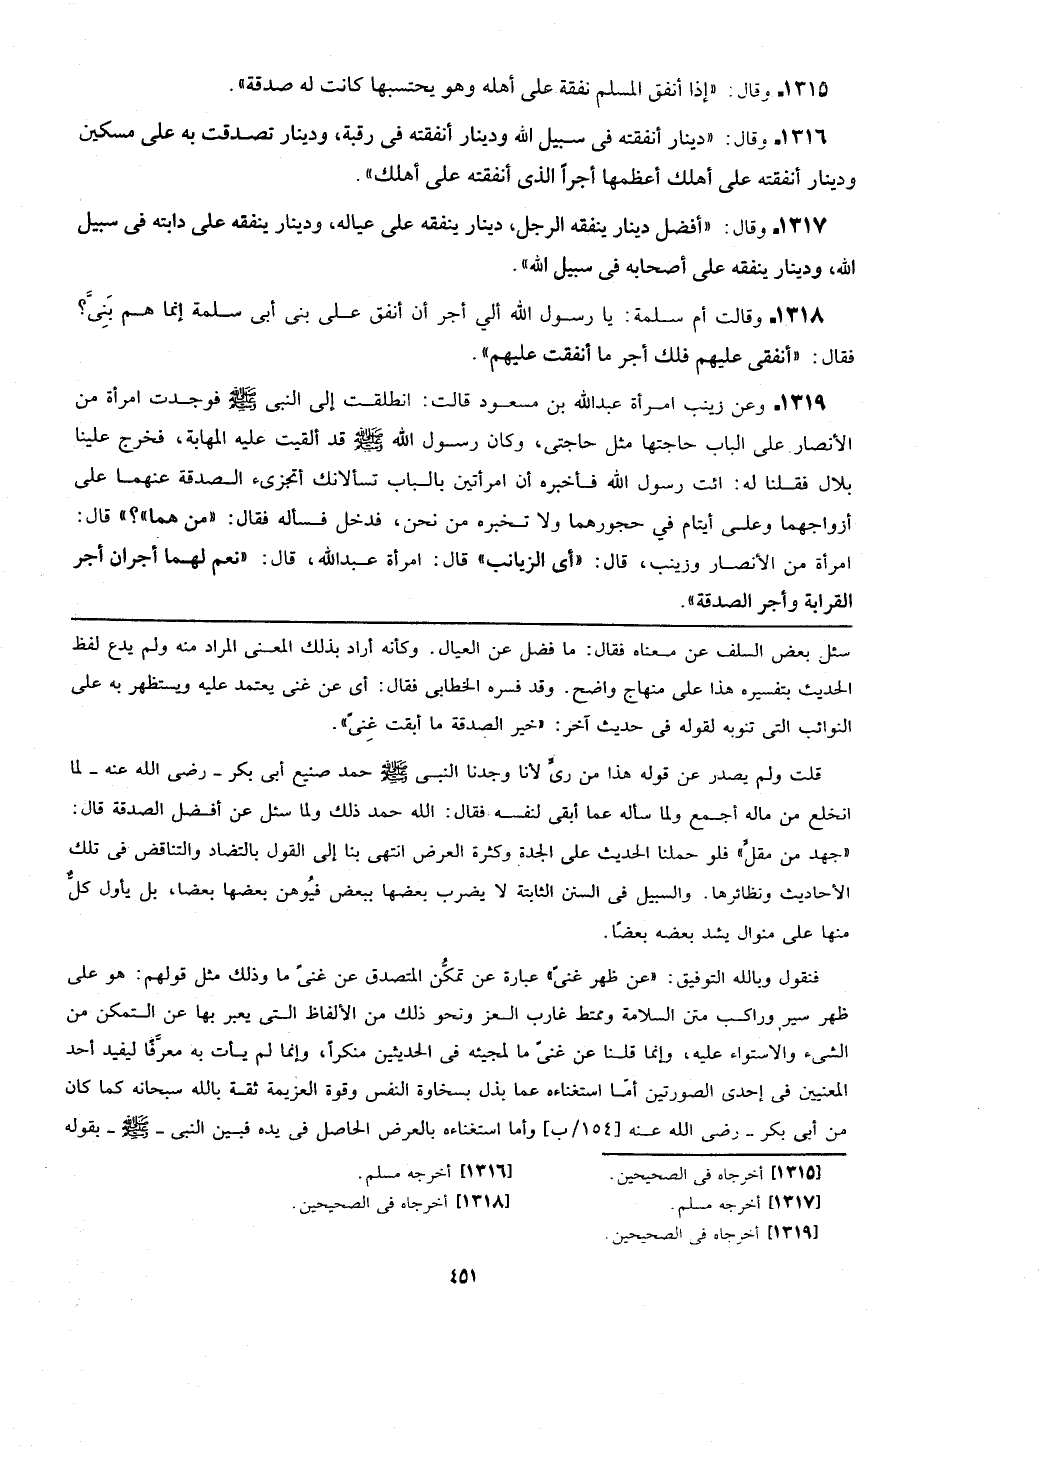 ١٣١٥ـ وقال: «إذا أنفق المسلم نفقة على أهله وهو يحتسبها كانت له صدقة».
١٣١٦ـ وقال: «دينار أنفقته فى سبيل الله ودينار أنفقته فى رقبة، ودينار تصدقت به على مسكين
ودينار أنفقته على أهلك أعظمها أجراً الذى أنفقته على أهلك».
١٣١٧ـ وقال: «أفضل دينار ينفقه الرجل، دينار ينفقه على عياله، ودينار ينفقه على دابته فى سبيل
الله، ودينار ينفقه على أصحابه فى سبيل الله».
١٣١٨ـ وقالت أم سلمة: يا رسول الله ألي أجر أن أنفق على بنى أبى سلمة إنما هم بَنِىَّ؟
فقال: «أنفقى عليهم فلك أجر ما أنفقت عليهم».
١٣١٩ـ وعن زينب امرأة عبدالله بن مسعود قالت: انطلقت إلى النبى ﷺ فوجدت امرأة من
الأنصار على الباب حاجتها مثل حاجتى، وكان رسول الله ﷺ قد ألقيت عليه المهابة، فخرج علينا
بلال فقلنا له: ائت رسول الله فأخبره أن امرأتين بالباب تسألانك أتجزىء الصدقة عنهما على
أزواجهما وعلى أيتام في حجورهما ولا تخبره من نحن، فدخل فسأله فقال: «من هما»؟» قال:
امرأة من الأنصار وزينب، قال: «أى الزيانب» قال: امرأة عبدالله، قال: «نعم لهما أجران أجر
القرابة وأجر الصدقة».
سئل بعض السلف عن معناه فقال: ما فضل عن العيال. وكأنه أراد بذلك المعنى المراد منه ولم يدع لفظ
الحديث بتفسيره هذا على منهاج واضح. وقد فسره الخطابى فقال: أى عن غنى يعتمد عليه ويستظهر به على
النوائب التى تنوبه لقوله فى حديث آخر: «خير الصدقة ما أبقت غِنىً».
قلت ولم يصدر عن قوله هذا من رىٍّ لأنا وجدنا النبى ﷺ حمد صنيع أبى بكر ـ رضى الله عنه ـ لما
انخلع من ماله أجمع ولما سأله عما أبقى لنفسه فقال: الله حمد ذلك ولما سئل عن أفضل الصدقة قال:
«جهد من مقلٍّ» فلو حملنا الحديث على الجدة وكثرة العرض انتهى بنا إلى القول بالتضاد والتناقض فى تلك
الأحاديث ونظائرها. والسبيل فى السنن الثابتة لا يضرب بعضها ببعض فيُوهن بعضها بعضا، بل يأول كلٌّ
منها على منوال يشد بعضه بعضًا.
فنقول وبالله التوفيق: «عن ظهر غنىً» عبارة عن تمكُّن المتصدق عن غنىً ما وذلك مثل قولهم: هو على
ظهر سير وراكب متن السلامة وممتط غارب العز ونحو ذلك من الألفاظ التى يعبر بها عن التمكن من
الشىء والاستواء عليه، وإنما قلنا عن غنىً ما لمجيئه فى الحديثين منكراً، وإنما لم يأت به معرَّفًا ليفيد أحد
المعنيين فى إحدى الصورتين أمّا استغناءه عما بذل بسخاوة النفس وقوة العزيمة ثقة بالله سبحانه كما كان
من أبى بكر ـ رضى الله عنه [١٥٤/ب] وأما استغناءه بالعرض الحاصل فى يده فبين النبى ـ ﷺ ـ بقوله
[١٣١٥] أخرجاه فى الصحيحين. [١٣١٦] أخرجه مسلم.
[١٣١٧] أخرجه مسلم. [١٣١٨] أخرجاه فى الصحيحين.
[١٣١٩] أخرجاه فى الصحيحين.
٤٥١